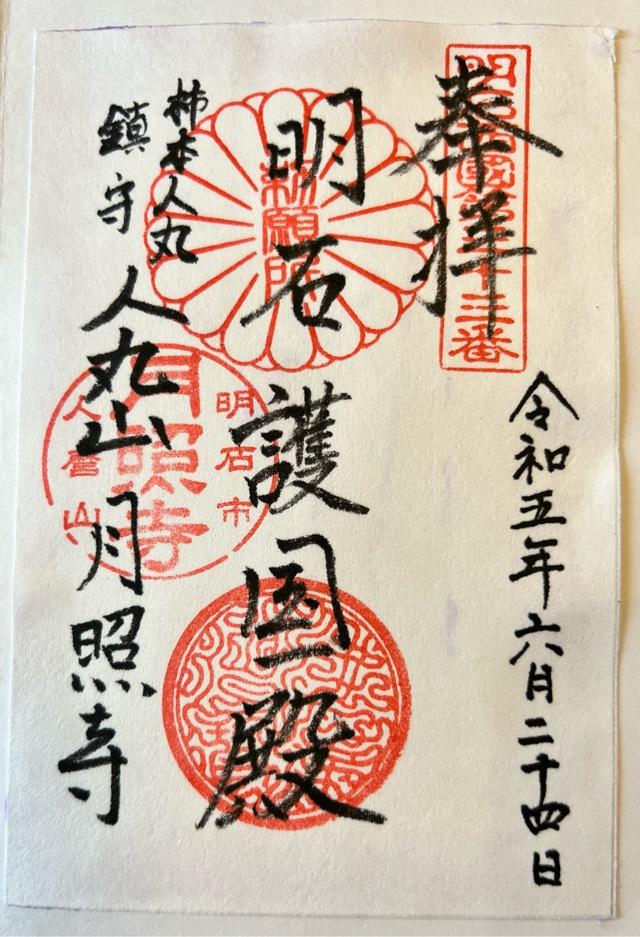 奉拝
令和五年六月二十四日
明石護国殿
柿本人丸
鎮守
人丸山月照寺
勅願所
月照寺
明石市
人麿山